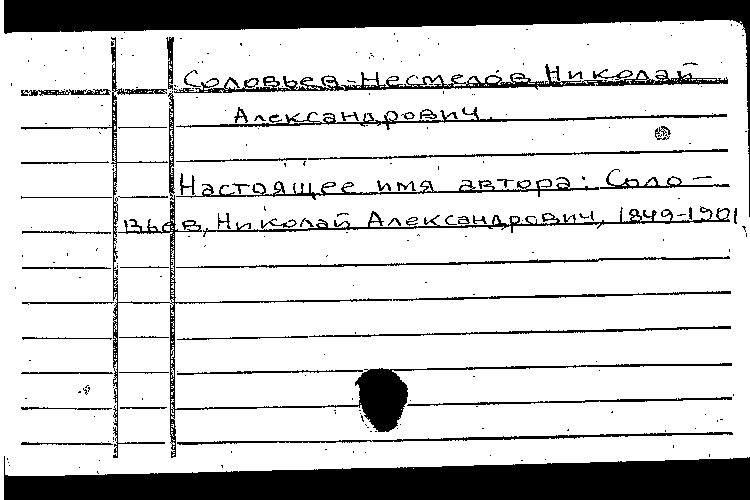 Соловьев-Несмелов, Николай
Александрович.
Настоящее имя автора: Соло-
вьев, Николай Александрович, 1849-1901.